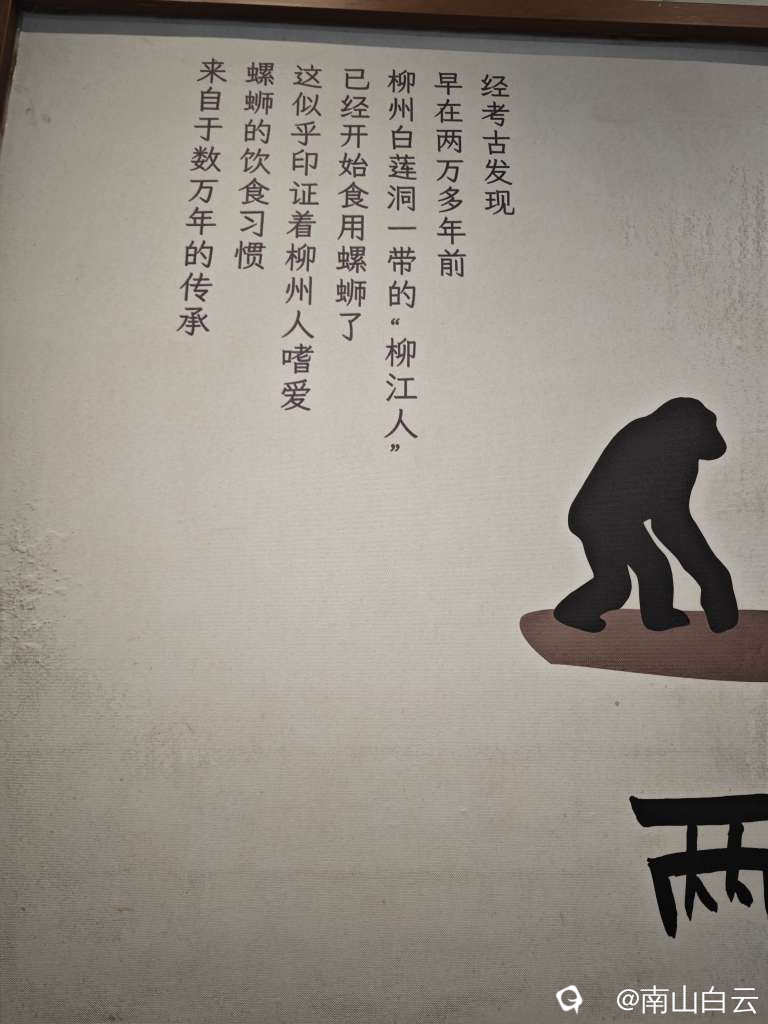 经考古发现
早在两万多年前
柳州白莲洞一带的“柳江人”
已经开始食用螺蛳了
这似乎印证着柳州人嗜爱
螺蛳的饮食习惯
来自于数万年的传承
两
@南山白云